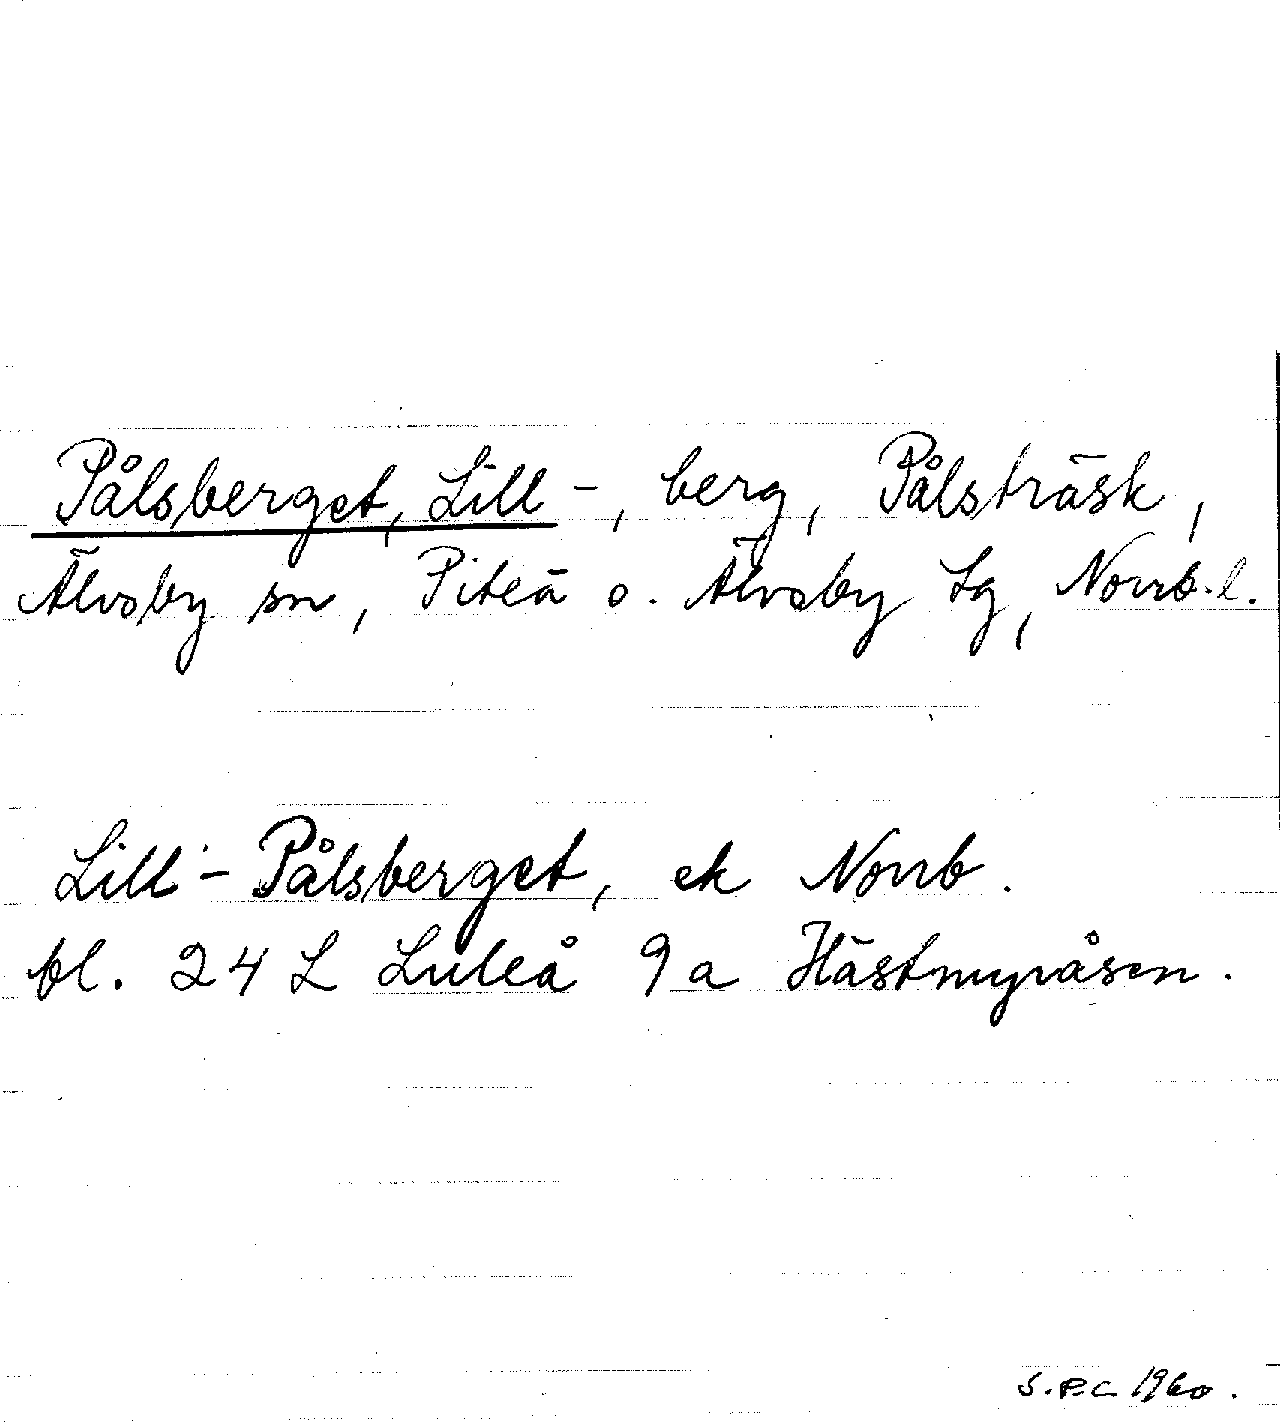 Pålsberget, Lill-, berg, Pålsträsk,
Älvsby sn, Piteå o. Älvsby tg, Norrb.l.
Lill-Pålsberget, ek Norrb.
bl. 24 L Luleå 9 a Hästmyråsen.
S.P.C 1960.